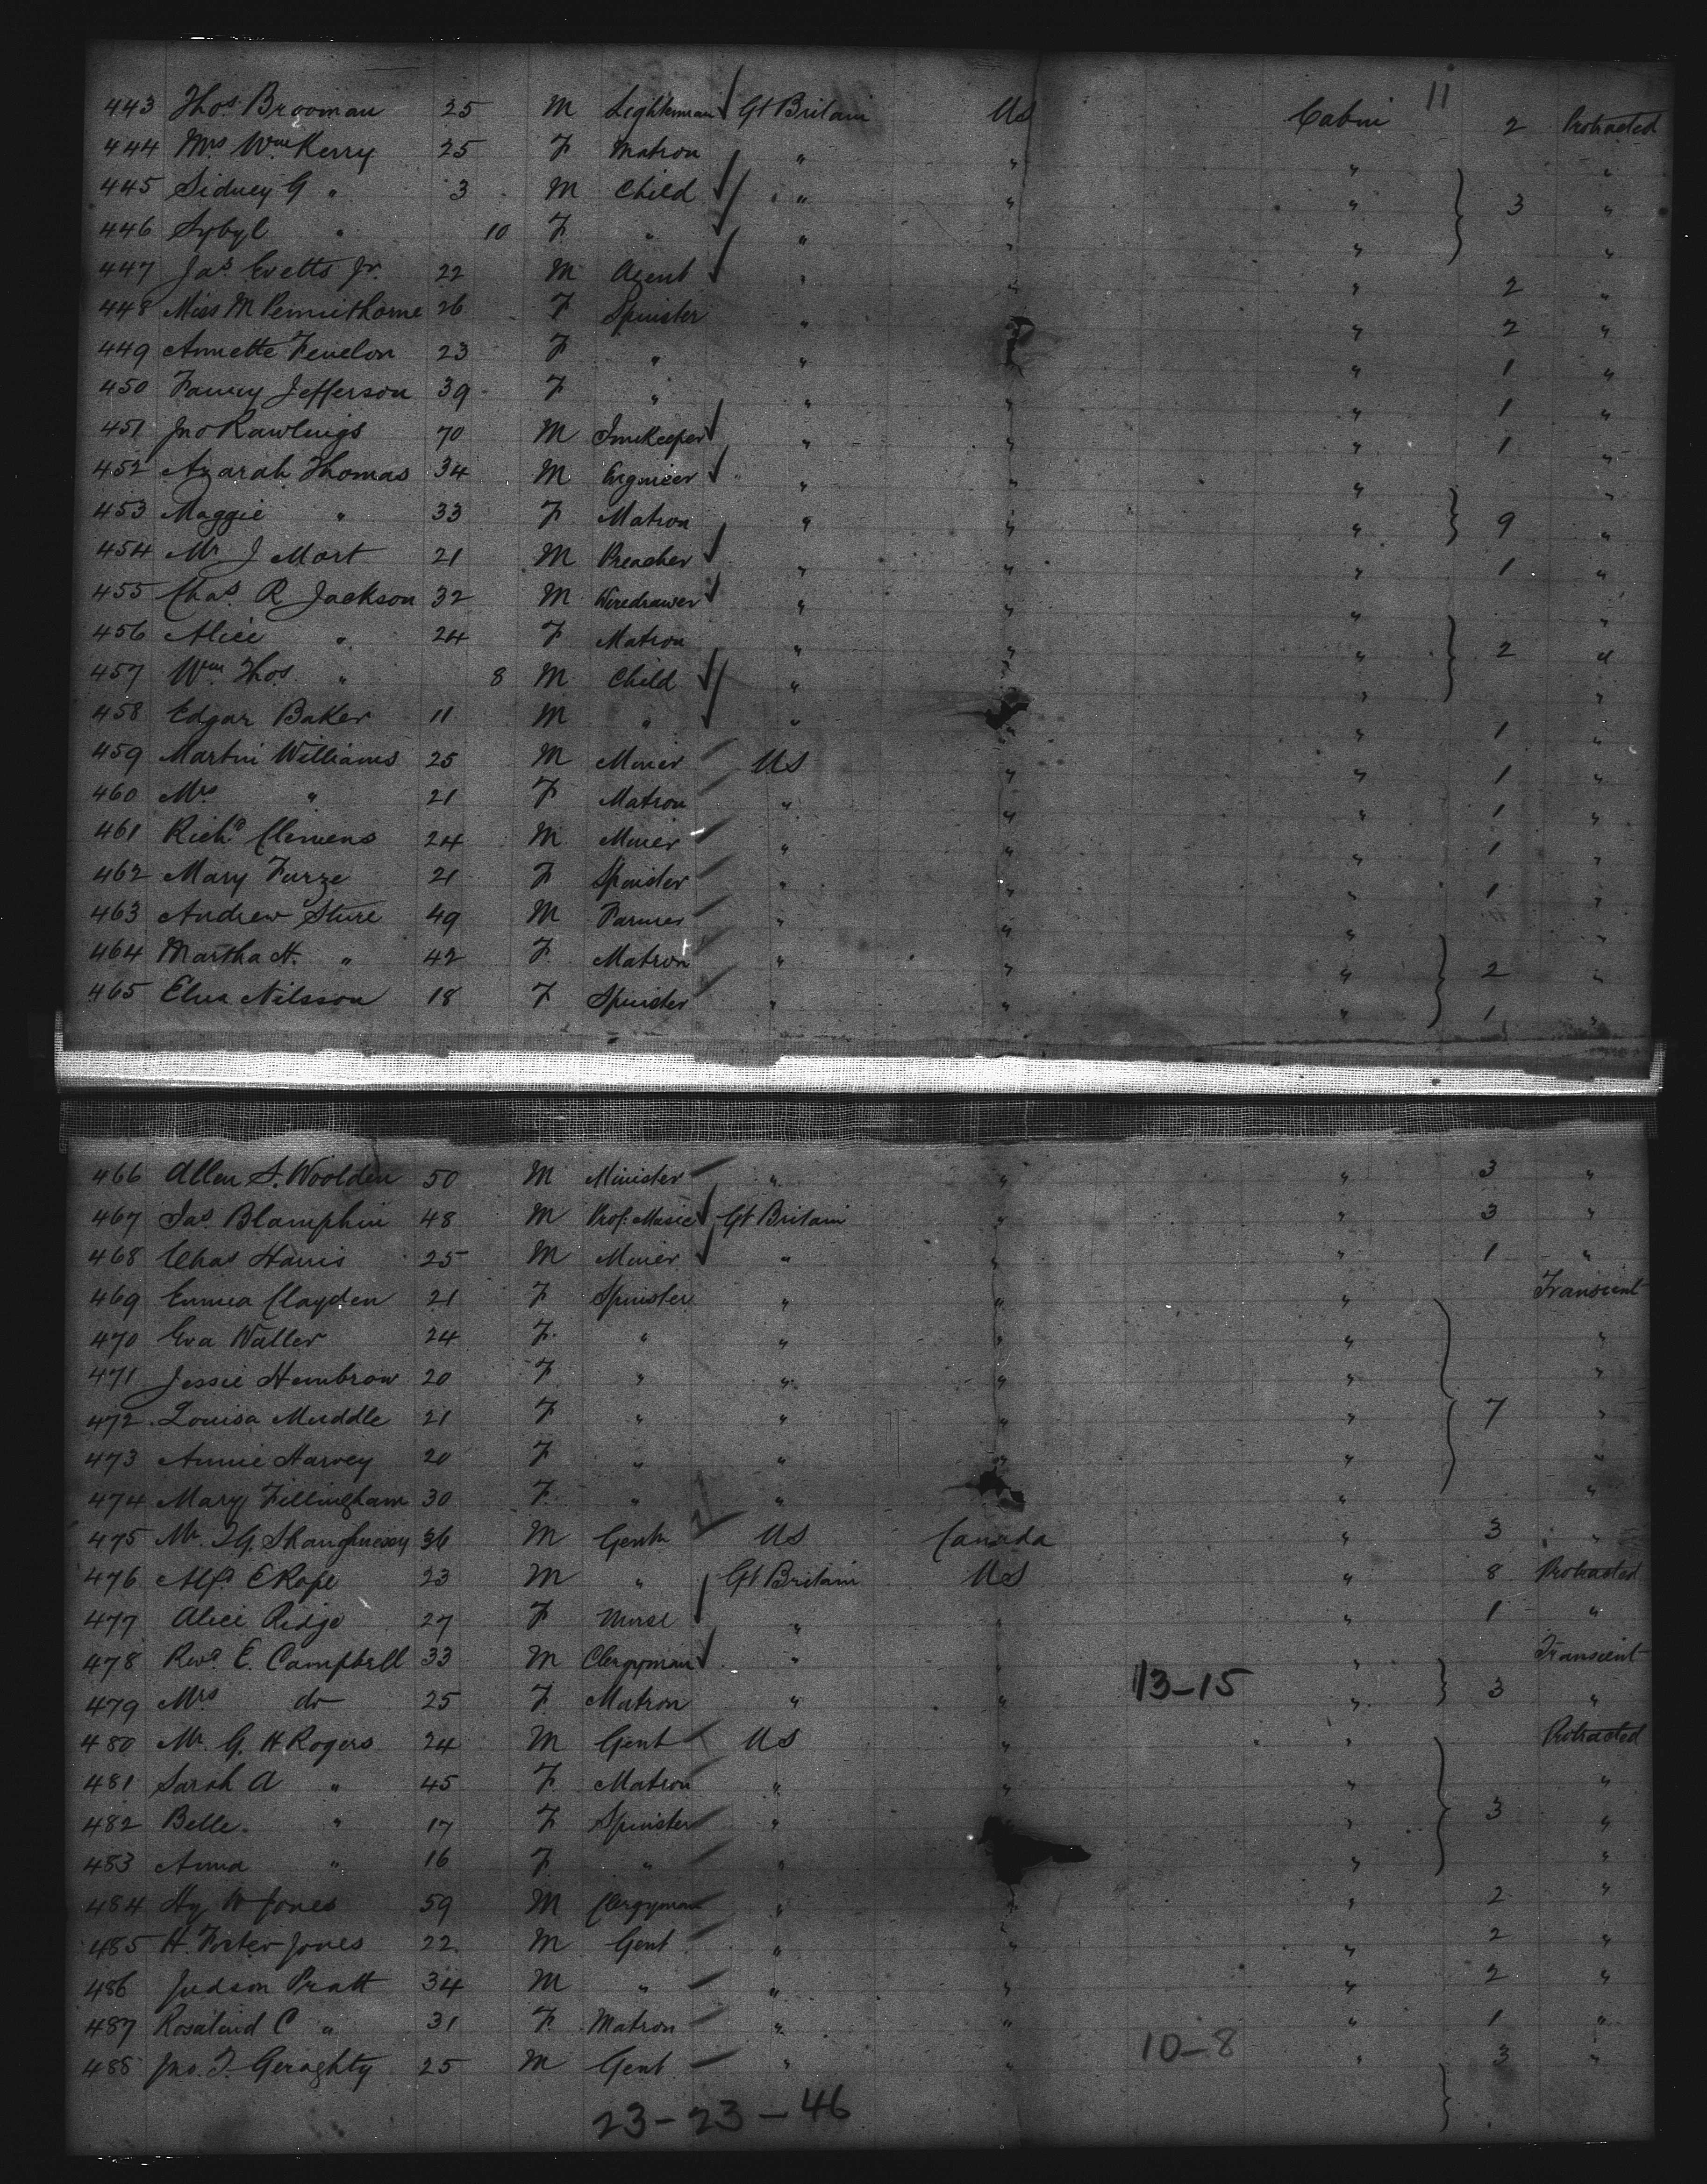 11
443 Thos. Brooman 25 M Lighterman Gt Britain US Cabin 2 Protracted
444 Mrs Wm Kerry 25 F Matron " " " "
445 Sidney G " 3 M Child " " " 3 "
446 Sybyl " 10 F " " " " "
447 Jas. Evetts Jr. 22 M Agent " " " 2 "
448 Miss M Pennithorne 26 F Spinster " " " 2 "
449 Annette Fenelon 23 F " " " " 1 "
450 Fanny Jefferson 39 F " " " " 1 "
451 Jno Rawlings 70 M Innkeeper " " " 1 "
452 Azarah Thomas 34 M Engineer " " " "
453 Maggie " 33 F Matron " " " 9 "
454 Mr J Mort 21 M Preacher " " " 1 "
455 Chas. R Jackson 32 M Wiredrawer " " " "
456 Alice " 24 F Matron " " " 2 "
457 Wm Thos. " 8 M Child " " " "
458 Edgar Baker 11 M " " " " 1 "
459 Martin Williams 25 M Miner US " " 1 "
460 Mrs " 21 F Matron " " " 1 "
461 Richd Clemens 24 M Miner " " " 1 "
462 Mary Furze 21 F Spinster " " " 1 "
463 Andrew Sture 49 M Farmer " " " "
464 Martha H. " 42 F Matron " " " 2 "
465 Elna Nilsson 18 F Spinster " " " 1 "
466 Allen S. Woolden 50 M Minister " " " 3 "
467 Jas. Blamphin 48 M Prof. Music Gt Britain " " 3 "
468 Chas Harris 25 M Miner " " " 1 "
469 Emma Clayden 21 F Spinster " " " Transient
470 Eva Waller 24 F. " " " " "
471 Jessie Hembrow 20 F " " " " "
472 Louisa Muddle 21 F " " " " 7 "
473 Annie Harvey 20 F " " " " "
474 Mary Fillingham 30 F. " " " " "
475 Mr. T.G. Shaughnessy 36 M Gentn US Canada " 3 "
476 Alfd E Rope 23 M " Gt Britain US " 8 Protracted
477 Alice Ridge 27 F Nurse " " " 1 "
478 Revd E. Campbell 33 M Clergyman " " " Transient
479 Mrs do 25 F Matron " " 13-15 " 3 "
480 Mr. G. H Rogers 24 M Gent US " " Protracted
481 Sarah A " 45 F Matron " " " "
482 Belle. " 17 F Spinster " " " 3 "
483 Anna " 16 F. " " " " "
484 Hy W Jones 59 M Clergyman " " " 2 "
485 H. Foster Jones 22 M Gent " " " 2 "
486 Judson Pratt 34 M " " " " 2 "
487 Rosalind C " 31 F. Matron " " " 1 "
488 Jno. T. Geraghty 25 M Gent " " 10-8 " 3 "
23-23-46